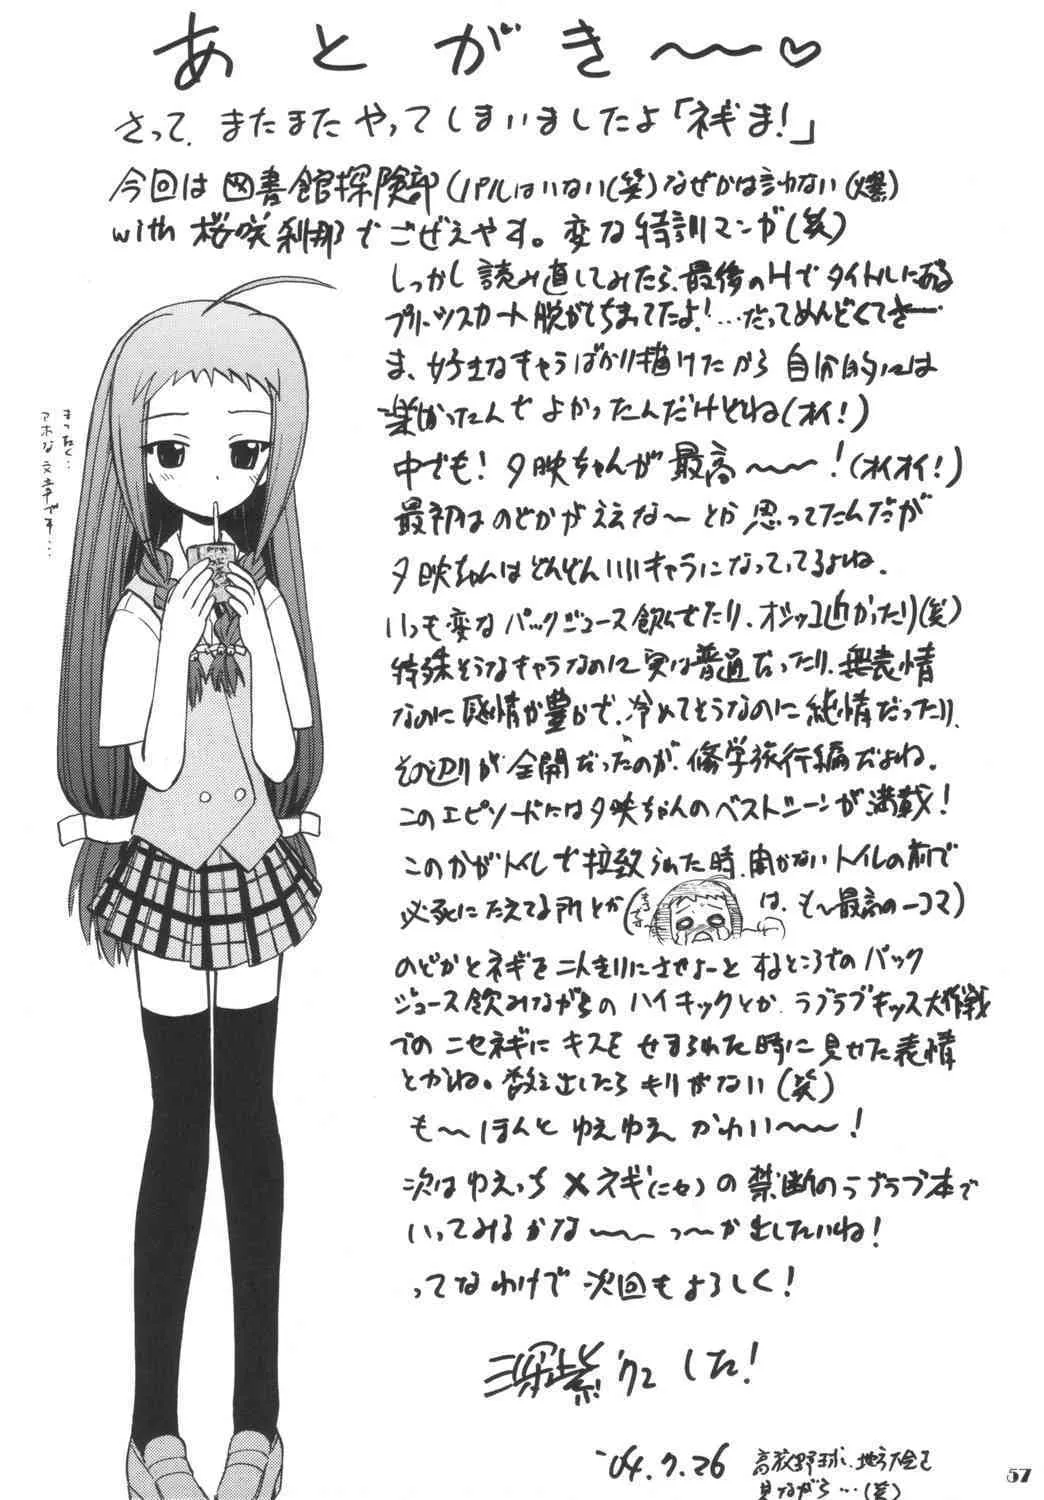 あとがき～～♡
さって、またまたやってしまいましたよ「ネギま!」
今回は図書館探険部(パルはいない(笑)なぜかは言わない(爆)
with 桜咲刹那でごぜえやす。変な特訓マンガ(笑)
しっかし読み直してみたら、最後のHでタイトルにある
プリーツスカート脱がせちまってたよ!…だってめんどくてさー…
ま、好きなキャラばかり描けたから自分的には
楽しかったんでよかったんだけどね(オイ!)
中でも!夕映ちゃんが最高～～～!(オイオイ!)
最初はのどかがええな～とか思ってたんだが
夕映ちゃんはどんどんいいキャラになっていってるよね。
いつも変なパックジュース飲んでたり、オシッコ近かったり(笑)
特殊そうなキャラなのに実は普通だったり、無表情
なのに感情が豊かで、冷めてそうなのに純情だったり、
その辺りが全開だったのが、修学旅行編だよね。
このエピソードには夕映ちゃんのベストシーンが満載!
このかがトイレで拉致られた時、開かないトイレの前で
必死にたえてる所とか(は、も～最高の一コマ)
のどかとネギを二人きりにさせよーとするところでのパック
ジュース飲みながらのハイキックとか、ラブラブキッス大作戦
でのニセネギにキスをせまられた時に見せた表情
とかね。数え出したらキリがない(笑)
も～ほんとゆえゆえかわい～～～!
次はゆえっち×ネギ(ニセ)の禁断のラブラブ本で
いってみるかな～～～っ～か出したいね!
ってなわけで次回もよろしく!
深紫でした!
'04.7.26
高校野球、地方大会を
見ながら…(笑)
まったく…
アホな文章です…
57